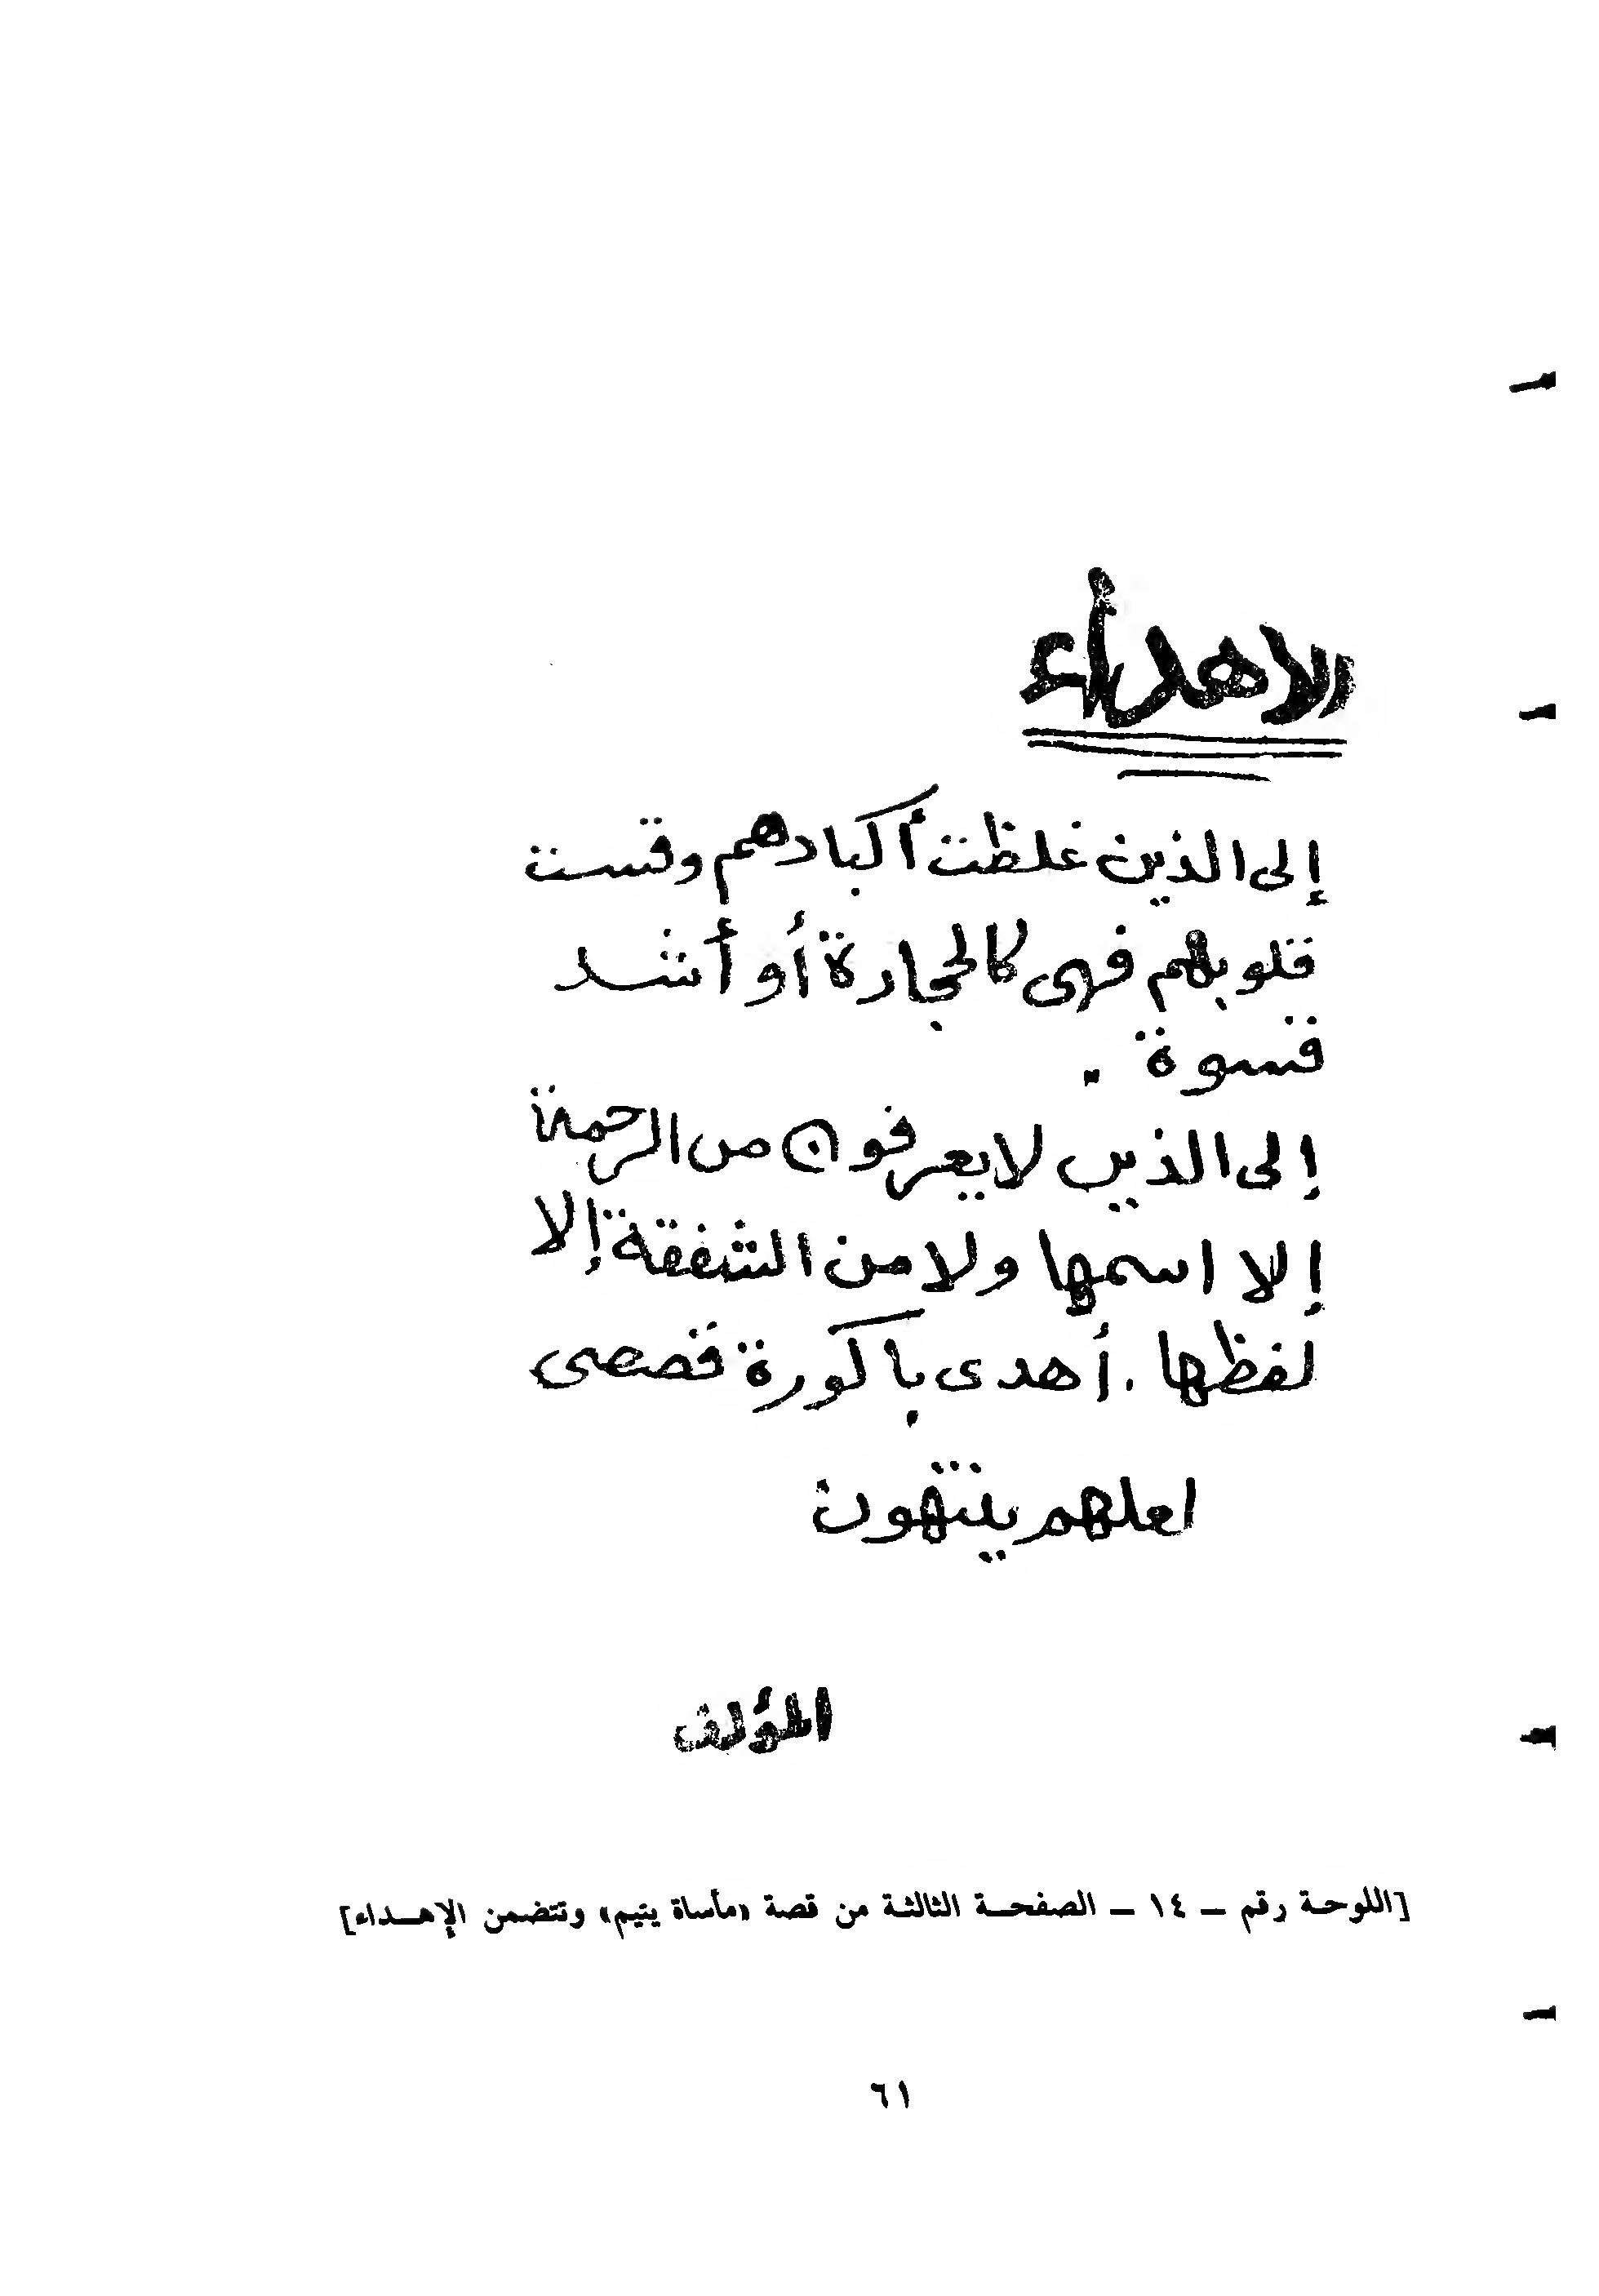 الاهداء
إلى الذين غلظت أكبادهم وقست
قلوبهم فهى كالحجارة أو أشد
قسوة .
إلى الذين لا يعرفون من الرحمة
إلا اسمها ولا من الشفقة إلا
لفظها . أهدى باكورة قصصى
لعلهم ينتهون
المؤلف
[اللوحة رقم – ١٤ – الصفحة الثالثة من قصة «مأساة يتيم» وتتضمن الإهداء]
٦١